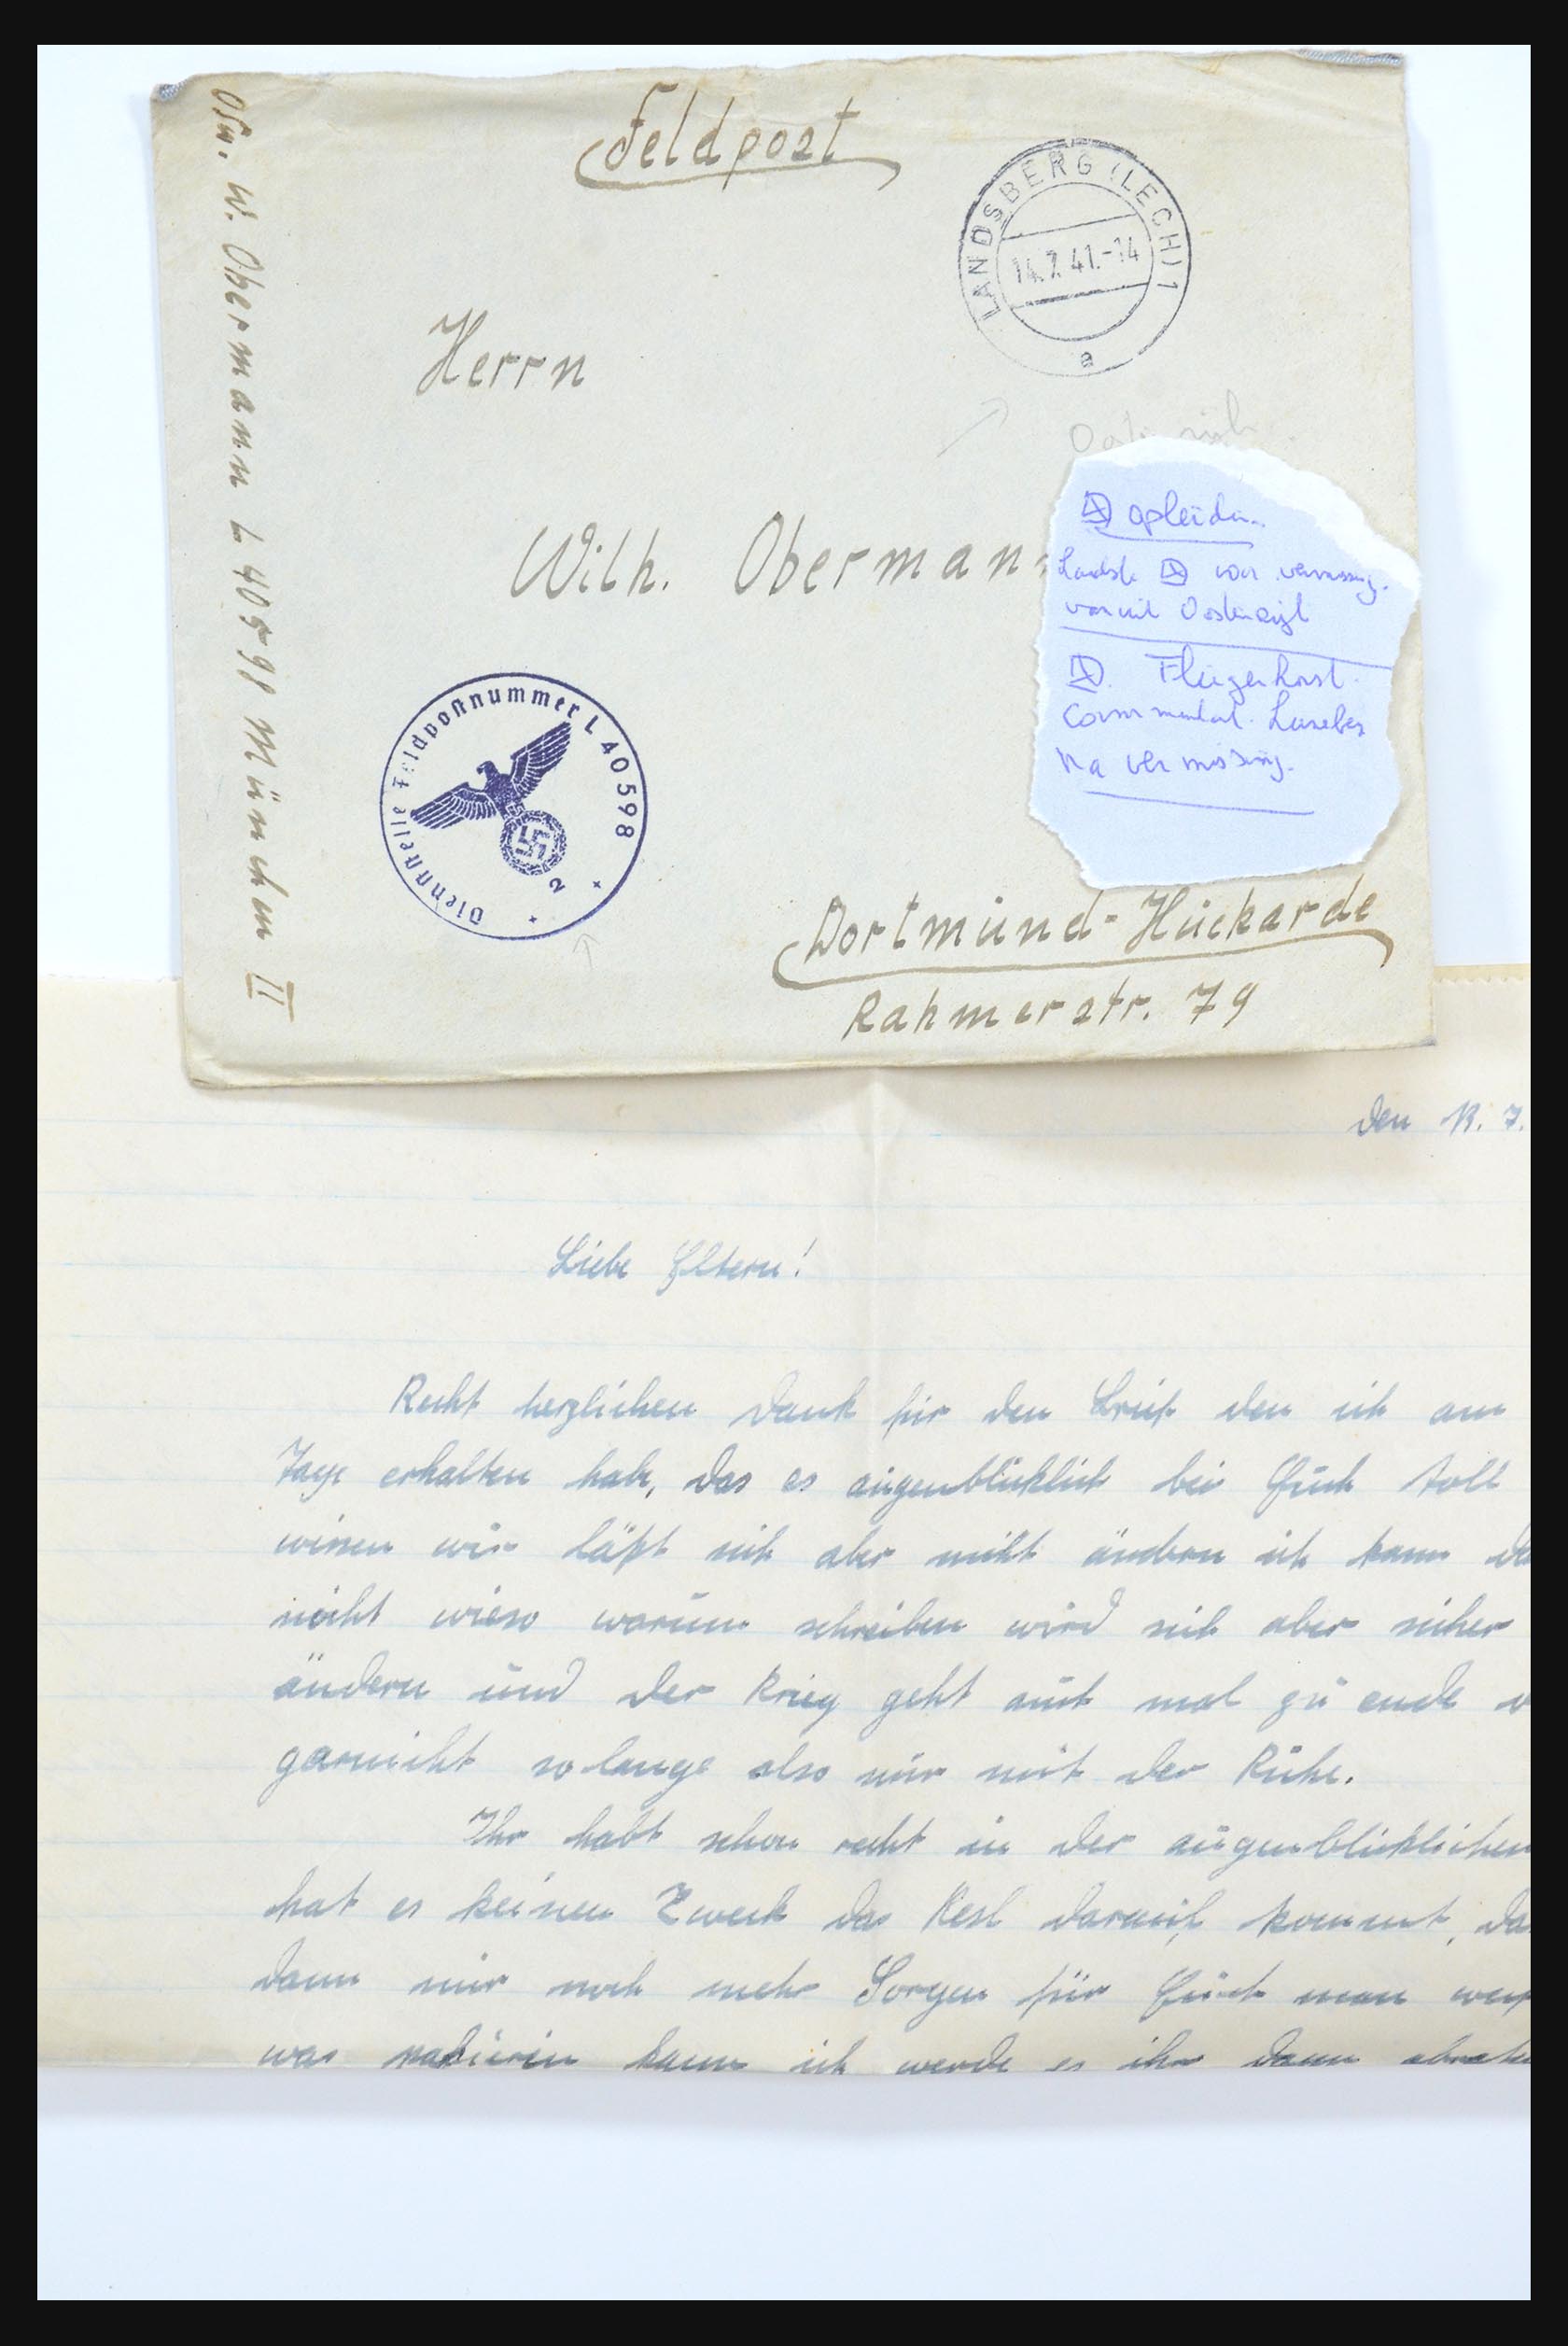 Feldpost
LANDSBERG (LECH) 1
14.7.41.-14
a
W. Obermann L 40598 München II
Herrn
Wilh. Oberman
opleidin
war
Fliegerhorst
Na vermissing.
Dienststelle Feldpostnummer L 40598
2
Dortmund-Huckarde
Rahmerstr. 79
den 13. 7.
Liebe Eltern!
Recht herzlichen Dank für den Brief den ich am
Tage erhalten habe, das es augenblicklich bei Euch toll
wissen wir läßt sich aber nicht ändern ich kann
nicht wieso warum schreiben wird sich aber sicher
ändern und der Krieg geht auch mal zu ende
garnicht so lange also nur mit der Ruhe.
Ihr habt schon recht in der augenblicklichen
hat es keinen Zweck das Resl darauf kommt,
dann nur noch mehr Sorgen für Euch man
was kann ich werde es ihr dann